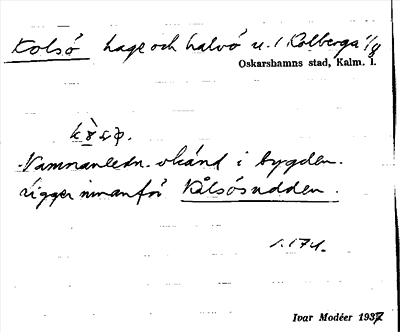 Kolsö hage och halvö u. / Kolberga 1/8
Oskarshamns stad, Kalm. l.
Namnanledn. okänd i bygden.
ligger innanför Kolsösudden.
s. 174.
Ivar Modéer 1937